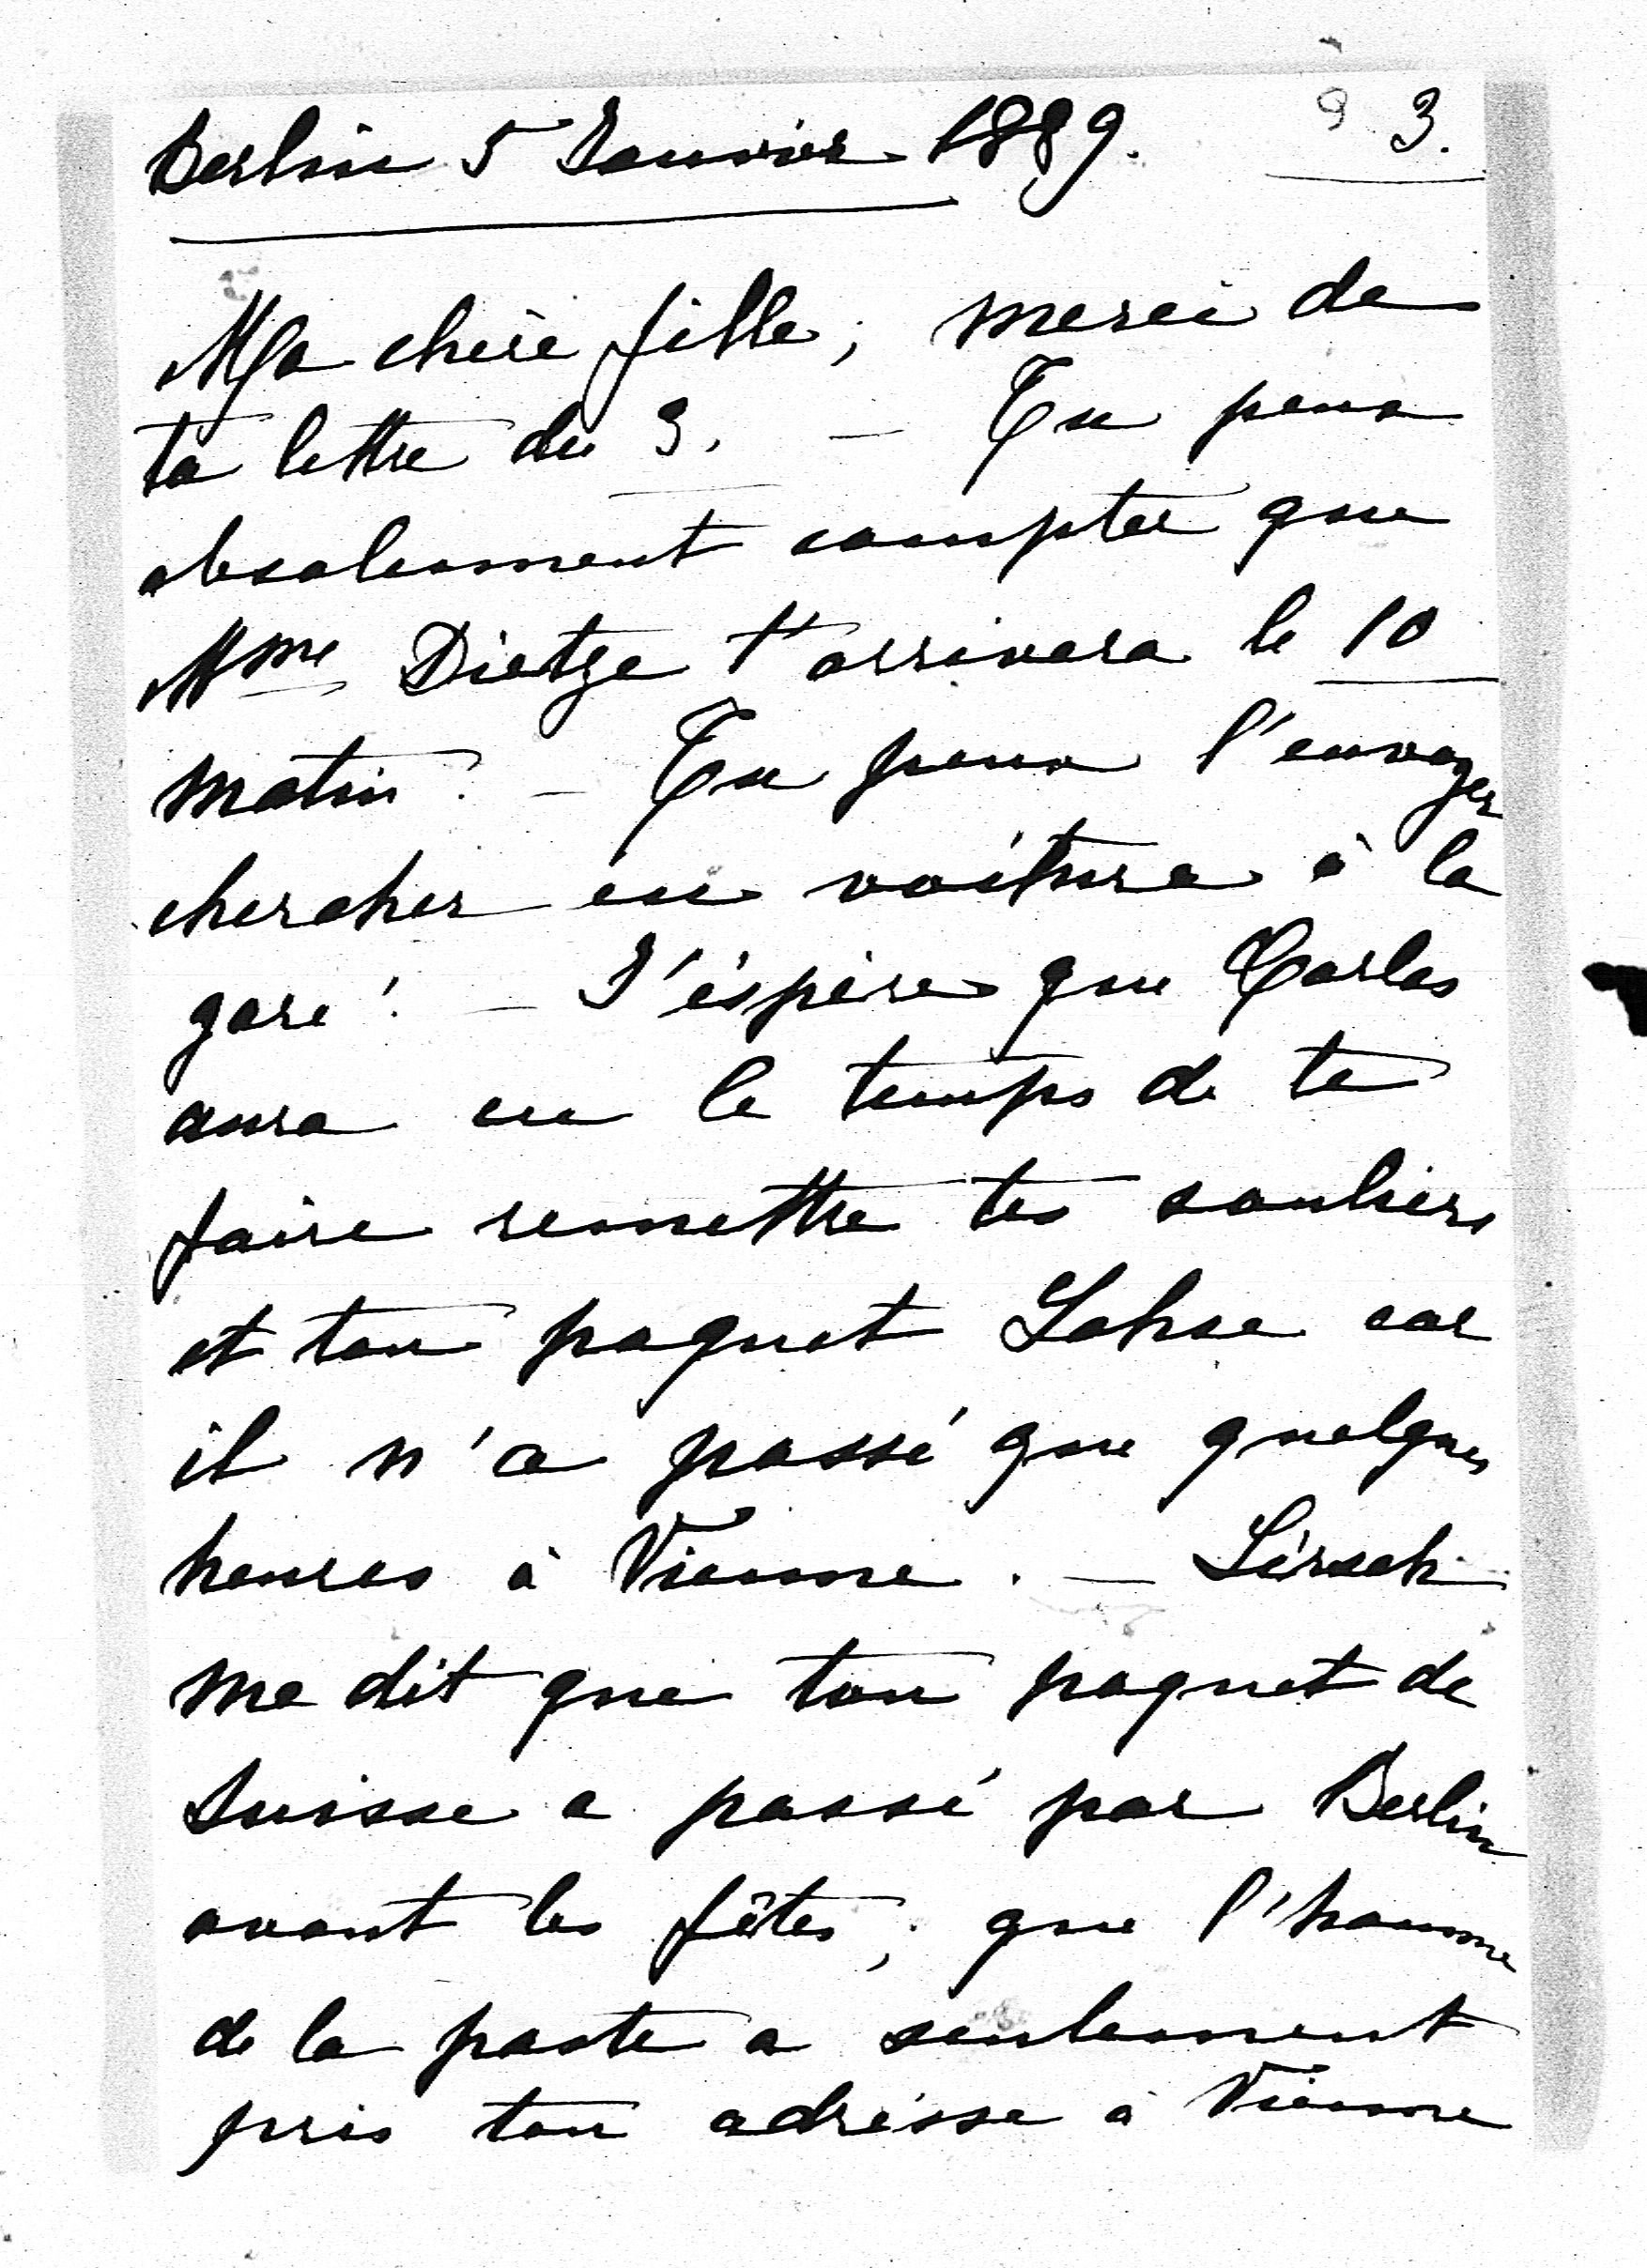 Berlin 5 Janvier 1889. 3.
Ma chère fille, merci de
ta lettre du 3. — Tu peux
absolument compter que
Mme Dietze t'arrivera le 10
matin. — Tu peux l'envoyer
chercher en voiture à la
gare! — J'éspère que Carlos
aura eu le temps de te
faire remettre tes souliers
et ton paquet Lohse car
il n'a passé que quelques
heures à Vienne. — Lirsch
me dit que ton paquet de
Suisse a passé par Berlin
avant les fêtes, que l'homme
de la poste a seulement
pris ton adrésse à Vienne